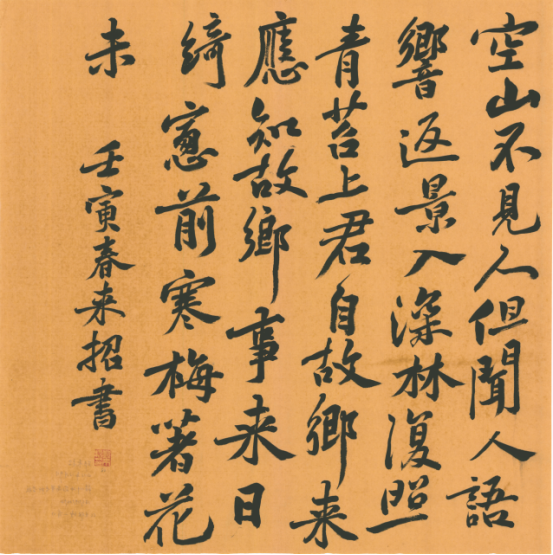 空山不見人但聞人語
響返景入深林復照
青苔上君自故鄉來
應知故鄉事来日
綺窻前寒梅著花
未
壬寅春来招書